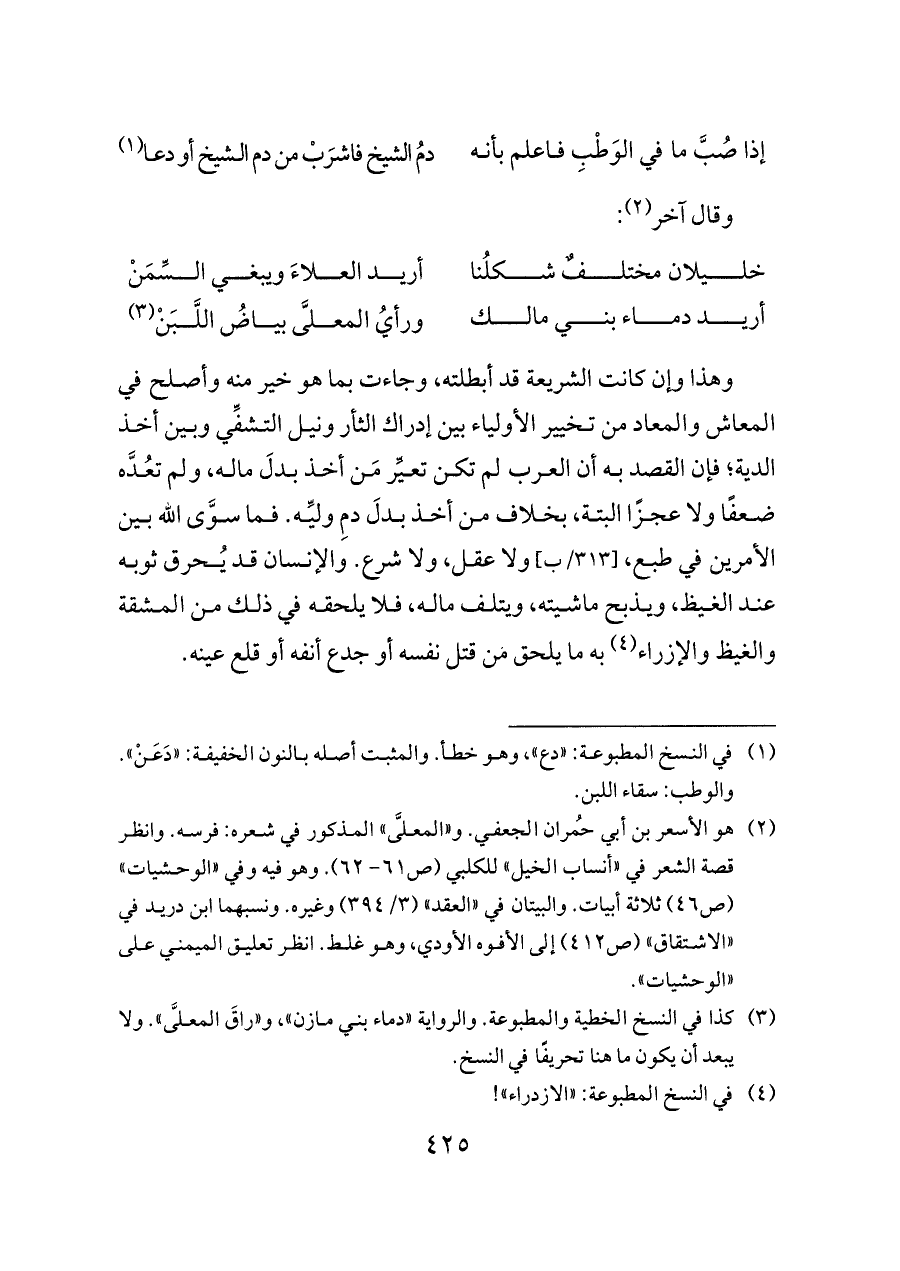 إذا صُبَّ ما في الوَطْبِ فاعلم بأنه دمُ الشيخ فاشرَبْ من دم الشيخ أو دعا(١)
وقال آخر(٢):
خليلان مختلفٌ شكلُنا أريد العلاءَ ويبغي السِّمَنْ
أريد دماء بني مالك ورأيُ المعلَّى بياضُ اللَّبَنْ(٣)
وهذا وإن كانت الشريعة قد أبطلته، وجاءت بما هو خير منه وأصلح في
المعاش والمعاد من تخيير الأولياء بين إدراك الثأر ونيل التشفِّي وبين أخذ
الدية؛ فإن القصد به أن العرب لم تكن تعيِّر مَن أخذ بدلَ ماله، ولم تعُدَّه
ضعفًا ولا عجزًا البتة، بخلاف من أخذ بدلَ دمِ وليِّه. فما سوَّى الله بين
الأمرين في طبع، [٣١٣/ب] ولا عقل، ولا شرع. والإنسان قد يُحرق ثوبه
عند الغيظ، ويذبح ماشيته، ويتلف ماله، فلا يلحقه في ذلك من المشقة
والغيظ والإزراء(٤) به ما يلحق مَن قتل نفسه أو جدع أنفه أو قلع عينه.
(١) في النسخ المطبوعة: «دع»، وهو خطأ. والمثبت أصله بالنون الخفيفة: «دَعَنْ».
والوطب: سقاء اللبن.
(٢) هو الأسعر بن أبي حمُران الجعفي. و«المعلَّى» المذكور في شعره: فرسه. وانظر
قصة الشعر في «أنساب الخيل» للكلبي (ص٦١-٦٢). وهو فيه وفي «الوحشيات»
(ص٤٦) ثلاثة أبيات. والبيتان في «العقد» (٣/ ٣٩٤) وغيره. ونسبهما ابن دريد في
«الاشتقاق» (ص٤١٢) إلى الأفوه الأودي، وهو غلط. انظر تعليق الميمني على
«الوحشيات».
(٣) كذا في النسخ الخطية والمطبوعة. والرواية «دماء بني مازن»، و«راقَ المعلَّى». ولا
يبعد أن يكون ما هنا تحريفًا في النسخ.
(٤) في النسخ المطبوعة: «الازدراء»!
٤٢٥